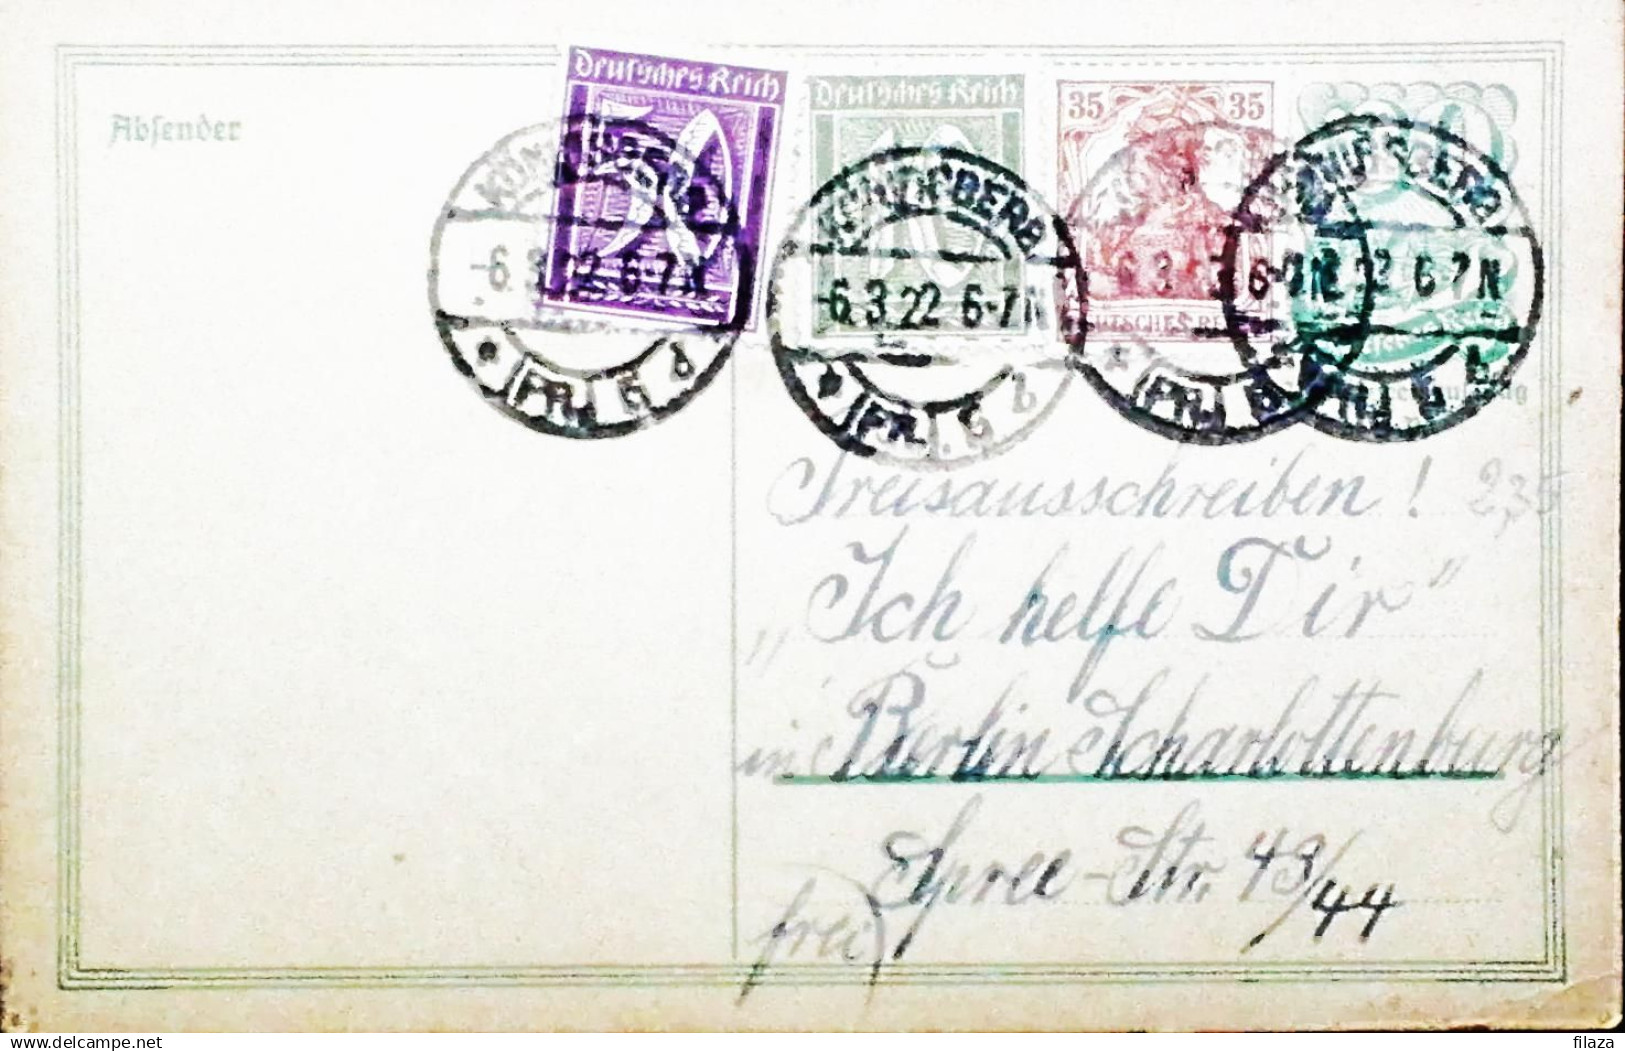 Absender
Deutsches Reich
50
Deutsches Reich
35 35
DEUTSCHES REICH
KÖNIGSBERG
-6.3.22 6-7 N
PR. 5 d
KÖNIGSBERG
-6.3.22 6-7 N
PR. 5 b
KÖNIGSBERG
22 6-7 N
PR. 5 b
Preisausschreiben! 2,35
„Ich helfe Dir“
in Berlin Scharlottenburg
Spree-Str. 43/44
frei)
filaza